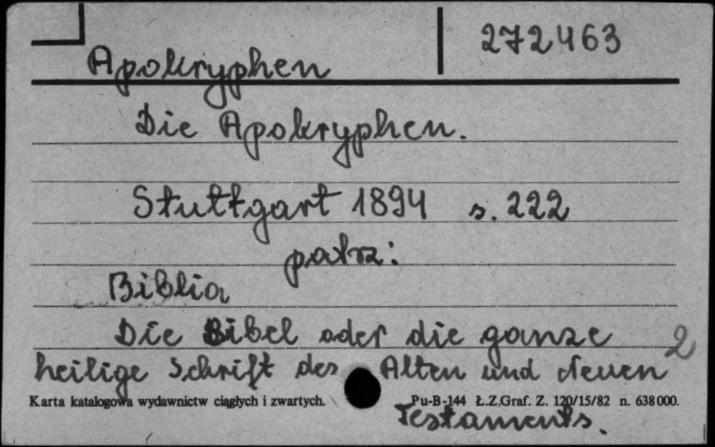 Apokryphen 272463
Die Apokryphen.
Stuttgart 1894 s. 222
patrz:
Biblia
Die Bibel oder die ganze 2
heilige Schrift des Alten und Neuen
Karta katalogowa wydawnictw ciągłych i zwartych. Pu-B-144 Ł.Z.Graf. Z. 120/15/82 n. 638000.
Testaments.